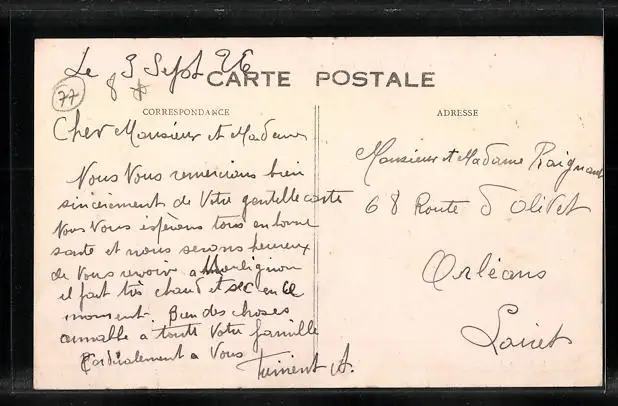 Le 3 Sept 26
77
8 #
CARTE POSTALE
CORRESPONDANCE
ADRESSE
Cher Monsieur et Madame
Nous Vous remercions bien
sincèrement de Votre gentille carte
Nous Vous espérons tous en bonne
sante et nous serons heureux
de Vous revoir a
il fait très chaud et sec en ce
moment. Bien des choses
aimable a toute Votre famille
Cordialement a Vous
A.
Monsieur et Madame
68 Route d Olivet
Orléans
Loiret